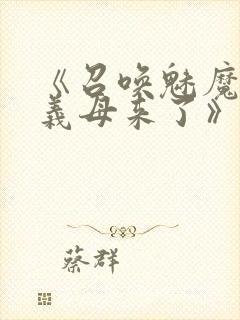 《召唤魅魔
義母来了》
蔡群